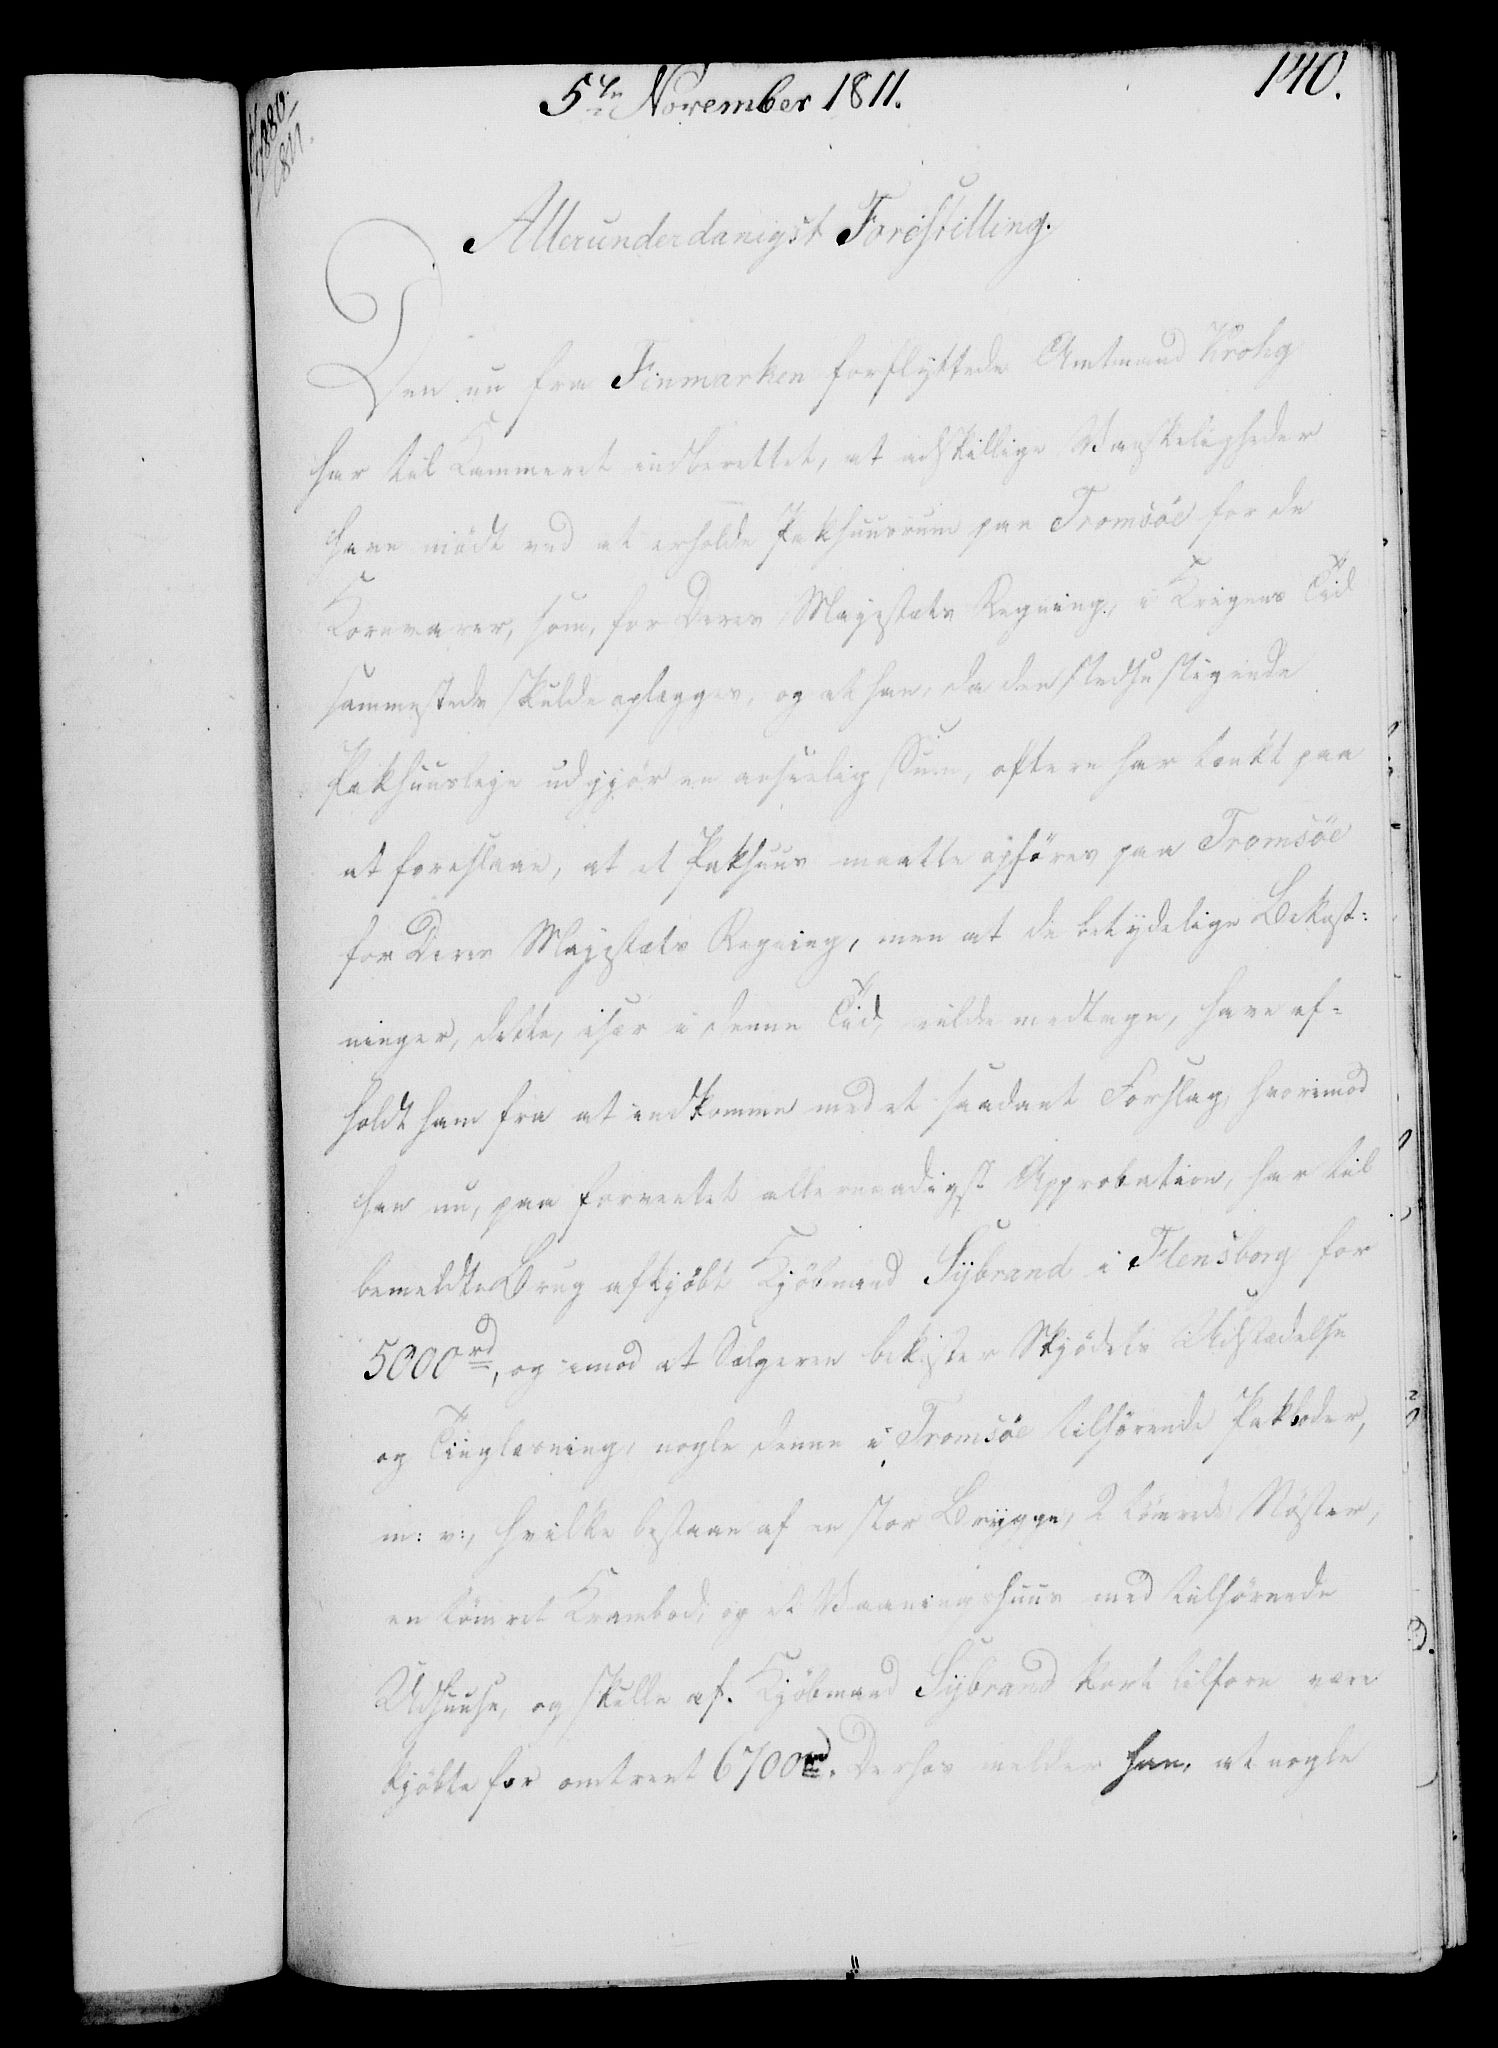 5te November 1811.
140.
Allerunderdanigst Forestilling.
Den nu fra Finmarken forflyttede Amtmand Krohg
har til Kammeret indberettet, at adskillige Vanskeligheder
have mödt ved at erholde Pakhuusrum paa Tromsöe for de
Kornvarer, som, for Deres Majestæts Regning, i Krigens Tid
sammesteds skulde oplægges, og at han, da den stedse stigende
Pakhuusleje udgjör en anseelig Sum, oftere har tænkt paa
at foreslaae, at et Pakhuus maatte opföres paa Tromsöe
for Deres Majestæts Regning, men at de betydelige Bekost:
ninger, dette, især i denne Tid, vilde medtage, have af-
holdt ham fra at indkomme med et saadant Forslag, hvorimod
han nu, paa forventet allernaadigst Approbation, har til
bemeldte Brug afkjöbt Kjöbmand Sybrand i Flensborg for
5000 rd, og imod at Sælgeren bekoster Skjödets Udstædelse
og Tinglæsning, nogle denne i Tromsöe tilhörende Pakboder,
m: v:, hvilke bestaae af en stor Brygge, 2 tömrede Nöster,
en tömret Krambod, og et Vaaningshuus med tilhörende
Udhuuse, og skulle af Kjöbmand Sybrand kort tilforn være
kjöbte for omtrent 6700 rd. Derhos melder han, at nogle